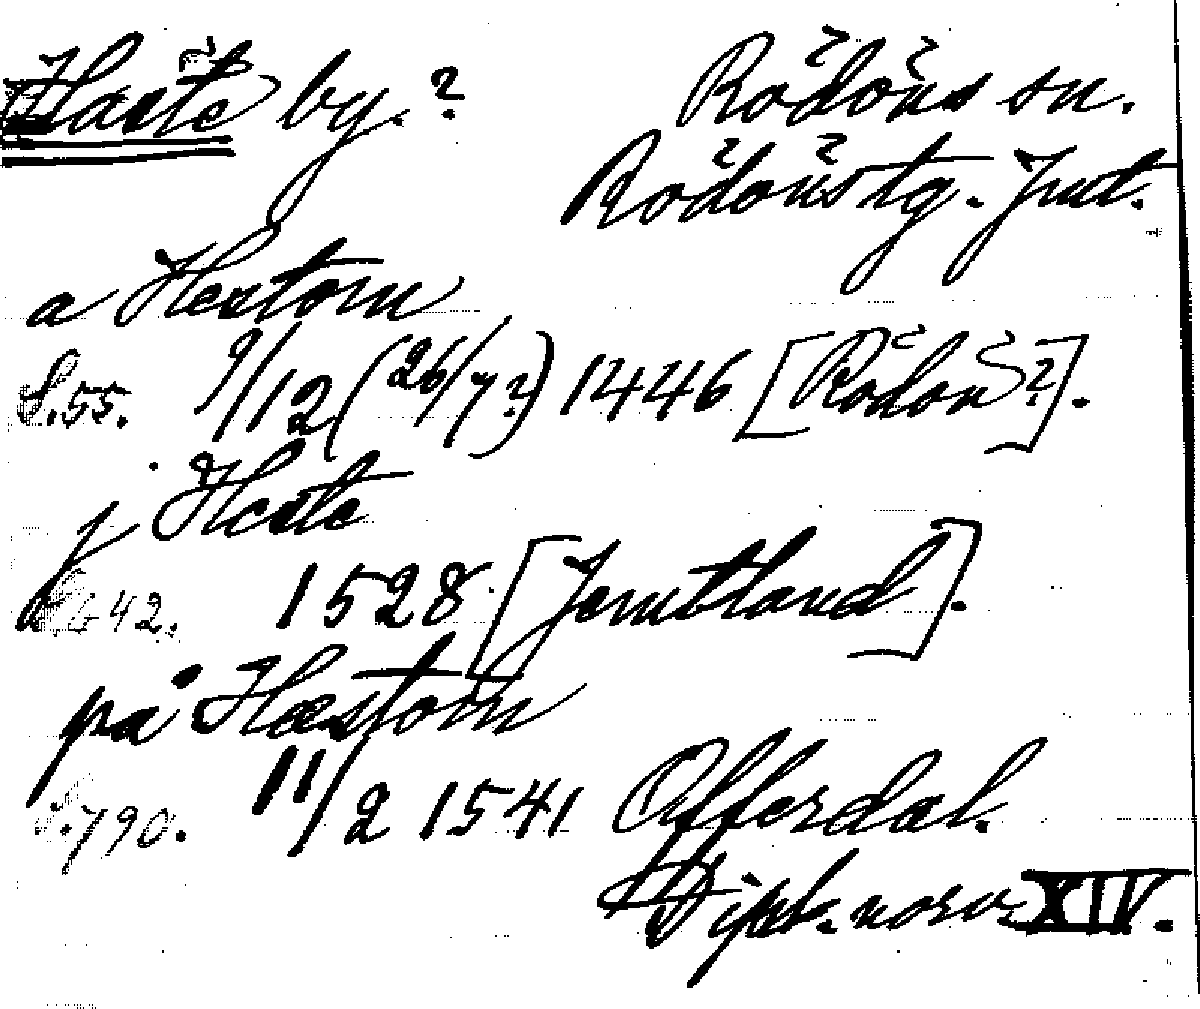 Haste by.?
Rödöns sn.
Rödöns tg. Jmt.
a Hestom
S.55. 9/12 (26/7?) 1446 [Rödön?].
j Heste
S. 42. 1528 [Jemtland].
på Hæstom
S.790. 11/2 1541 Offerdal.
Dipl. norv. XIV.